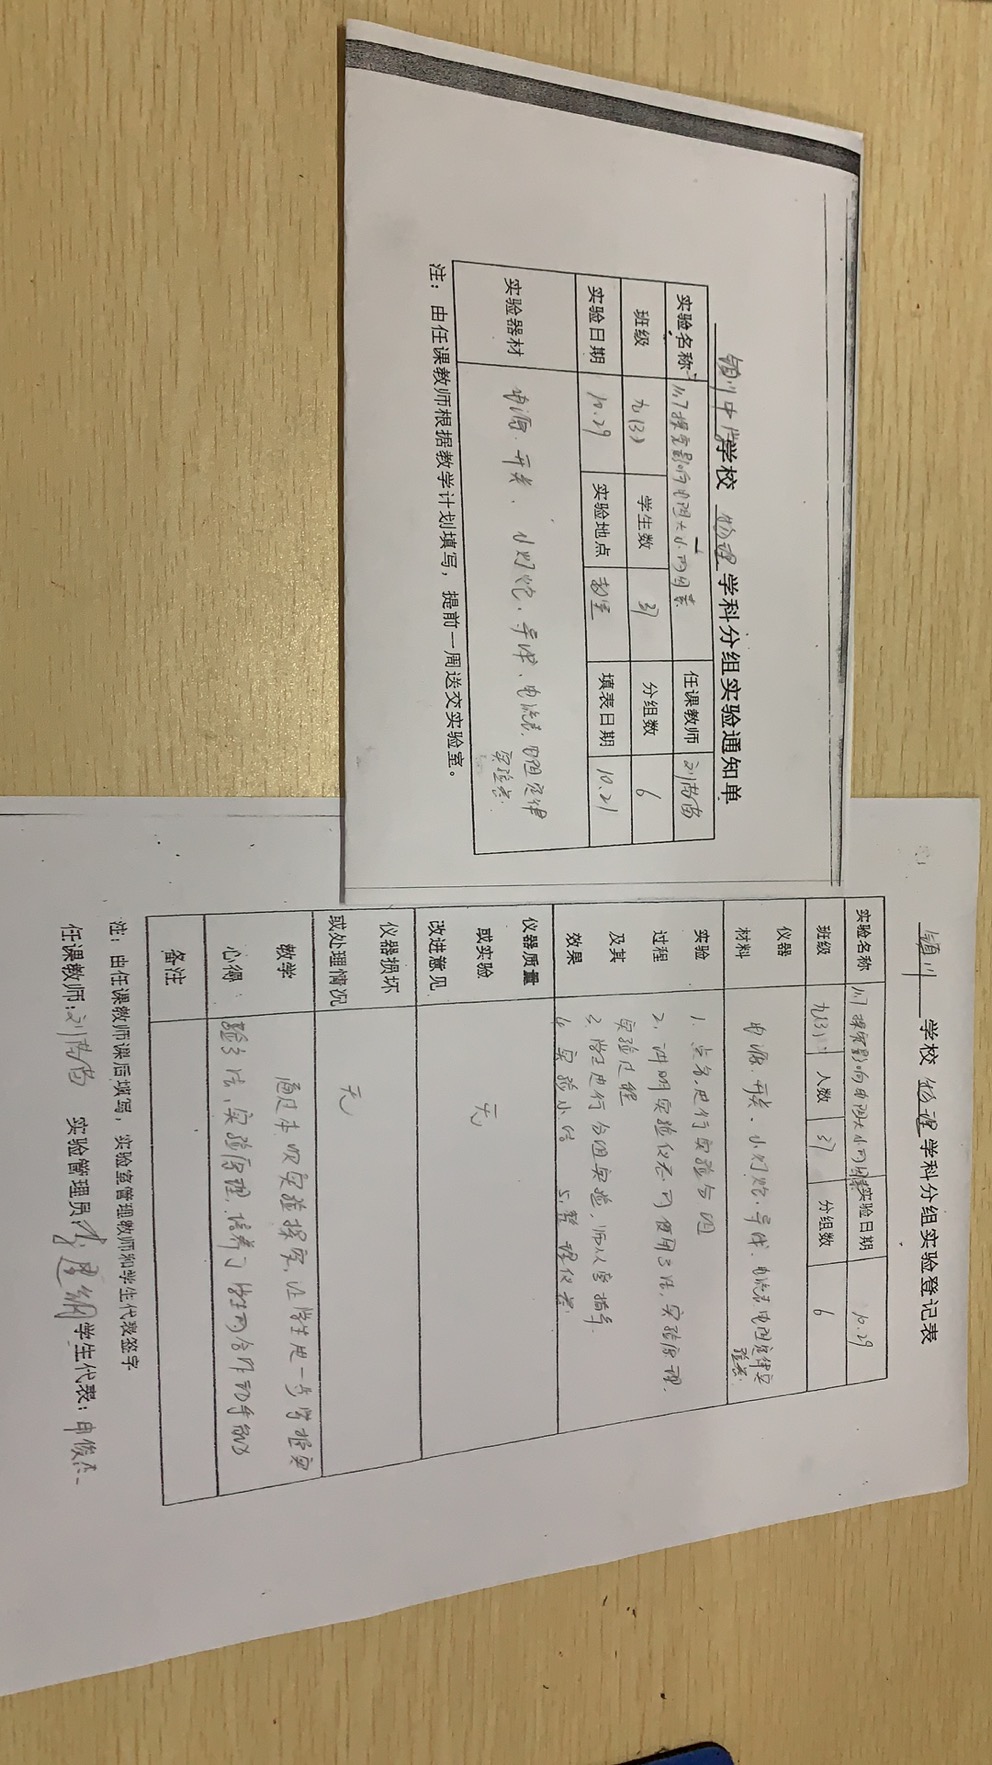 学校 物理 学科分组实验通知单
实验名称 11.7探究影响电阻大小的因素 任课教师
班级 九(3) 学生数 37 分组数 6
实验日期 10.29 实验地点 教室 填表日期 10.21
实验器材 电源、开关、小灯炮、导线、电流表、电阻定律
实验器
注：由任课教师根据教学计划填写，提前一周送交实验室。
学校 物理 学科分组实验登记表
实验名称 11.7探究影响电阻大小的因素 实验日期 10.29
班级 九(3) 人数 37 分组数 6
仪器
材料
电源、开关、小灯炮、导线、电流表、电阻定律实
验器
实验
过程
及其
效果
1、点名，进行实验分组
2、讲明实验仪器的使用方法，实验原理、
实验过程
3、学生进行分组实验，师从旁指导
4、实验小结 5、整理仪器
仪器质量
或实验
改进意见
无
仪器损坏
或处理情况
无
教学
心得
通过本次实验探究，让学生进一步掌握实
验方法，实验原理，培养了学生的合作动手能力
备注
注：由任课教师课后填写，实验室管理教师和学生代表签字
任课教师： 实验管理员： 学生代表：申俊杰